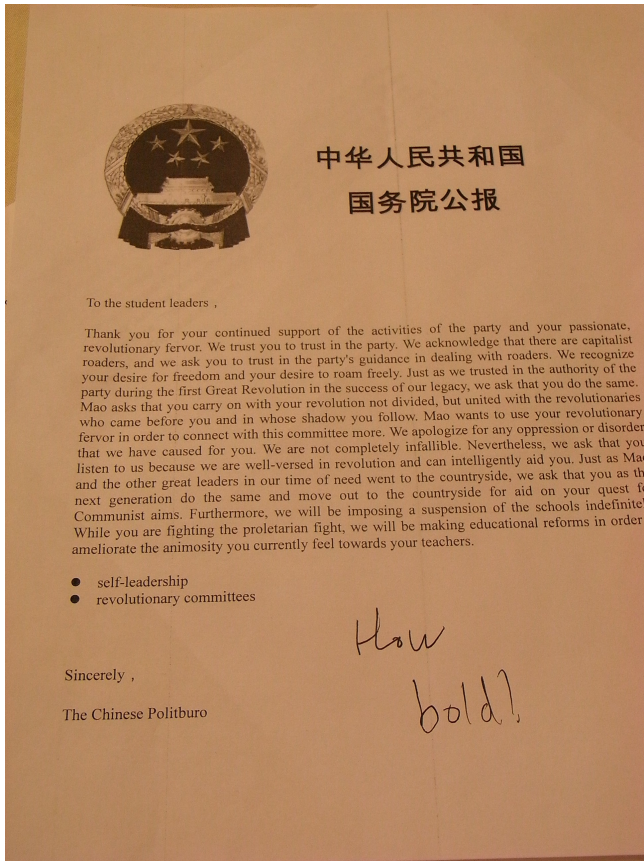 中华人民共和国
国务院公报
To the student leaders ,
Thank you for your continued support of the activities of the party and your passionate,
revolutionary fervor. We trust you to trust in the party. We acknowledge that there are capitalist
roaders, and we ask you to trust in the party's guidance in dealing with roaders. We recognize
your desire for freedom and your desire to roam freely. Just as we trusted in the authority of the
party during the first Great Revolution in the success of our legacy, we ask that you do the same.
Mao asks that you carry on with your revolution not divided, but united with the revolutionaries
who came before you and in whose shadow you follow. Mao wants to use your revolutionary
fervor in order to connect with this committee more. We apologize for any oppression or disorder
that we have caused for you. We are not completely infallible. Nevertheless, we ask that you
listen to us because we are well-versed in revolution and can intelligently aid you. Just as Mao
and the other great leaders in our time of need went to the countryside, we ask that you as th
next generation do the same and move out to the countryside for aid on your quest f
Communist aims. Furthermore, we will be imposing a suspension of the schools indefinite
While you are fighting the proletarian fight, we will be making educational reforms in order
ameliorate the animosity you currently feel towards your teachers.
● self-leadership
● revolutionary committees
How
bold?
Sincerely ,
The Chinese Politburo